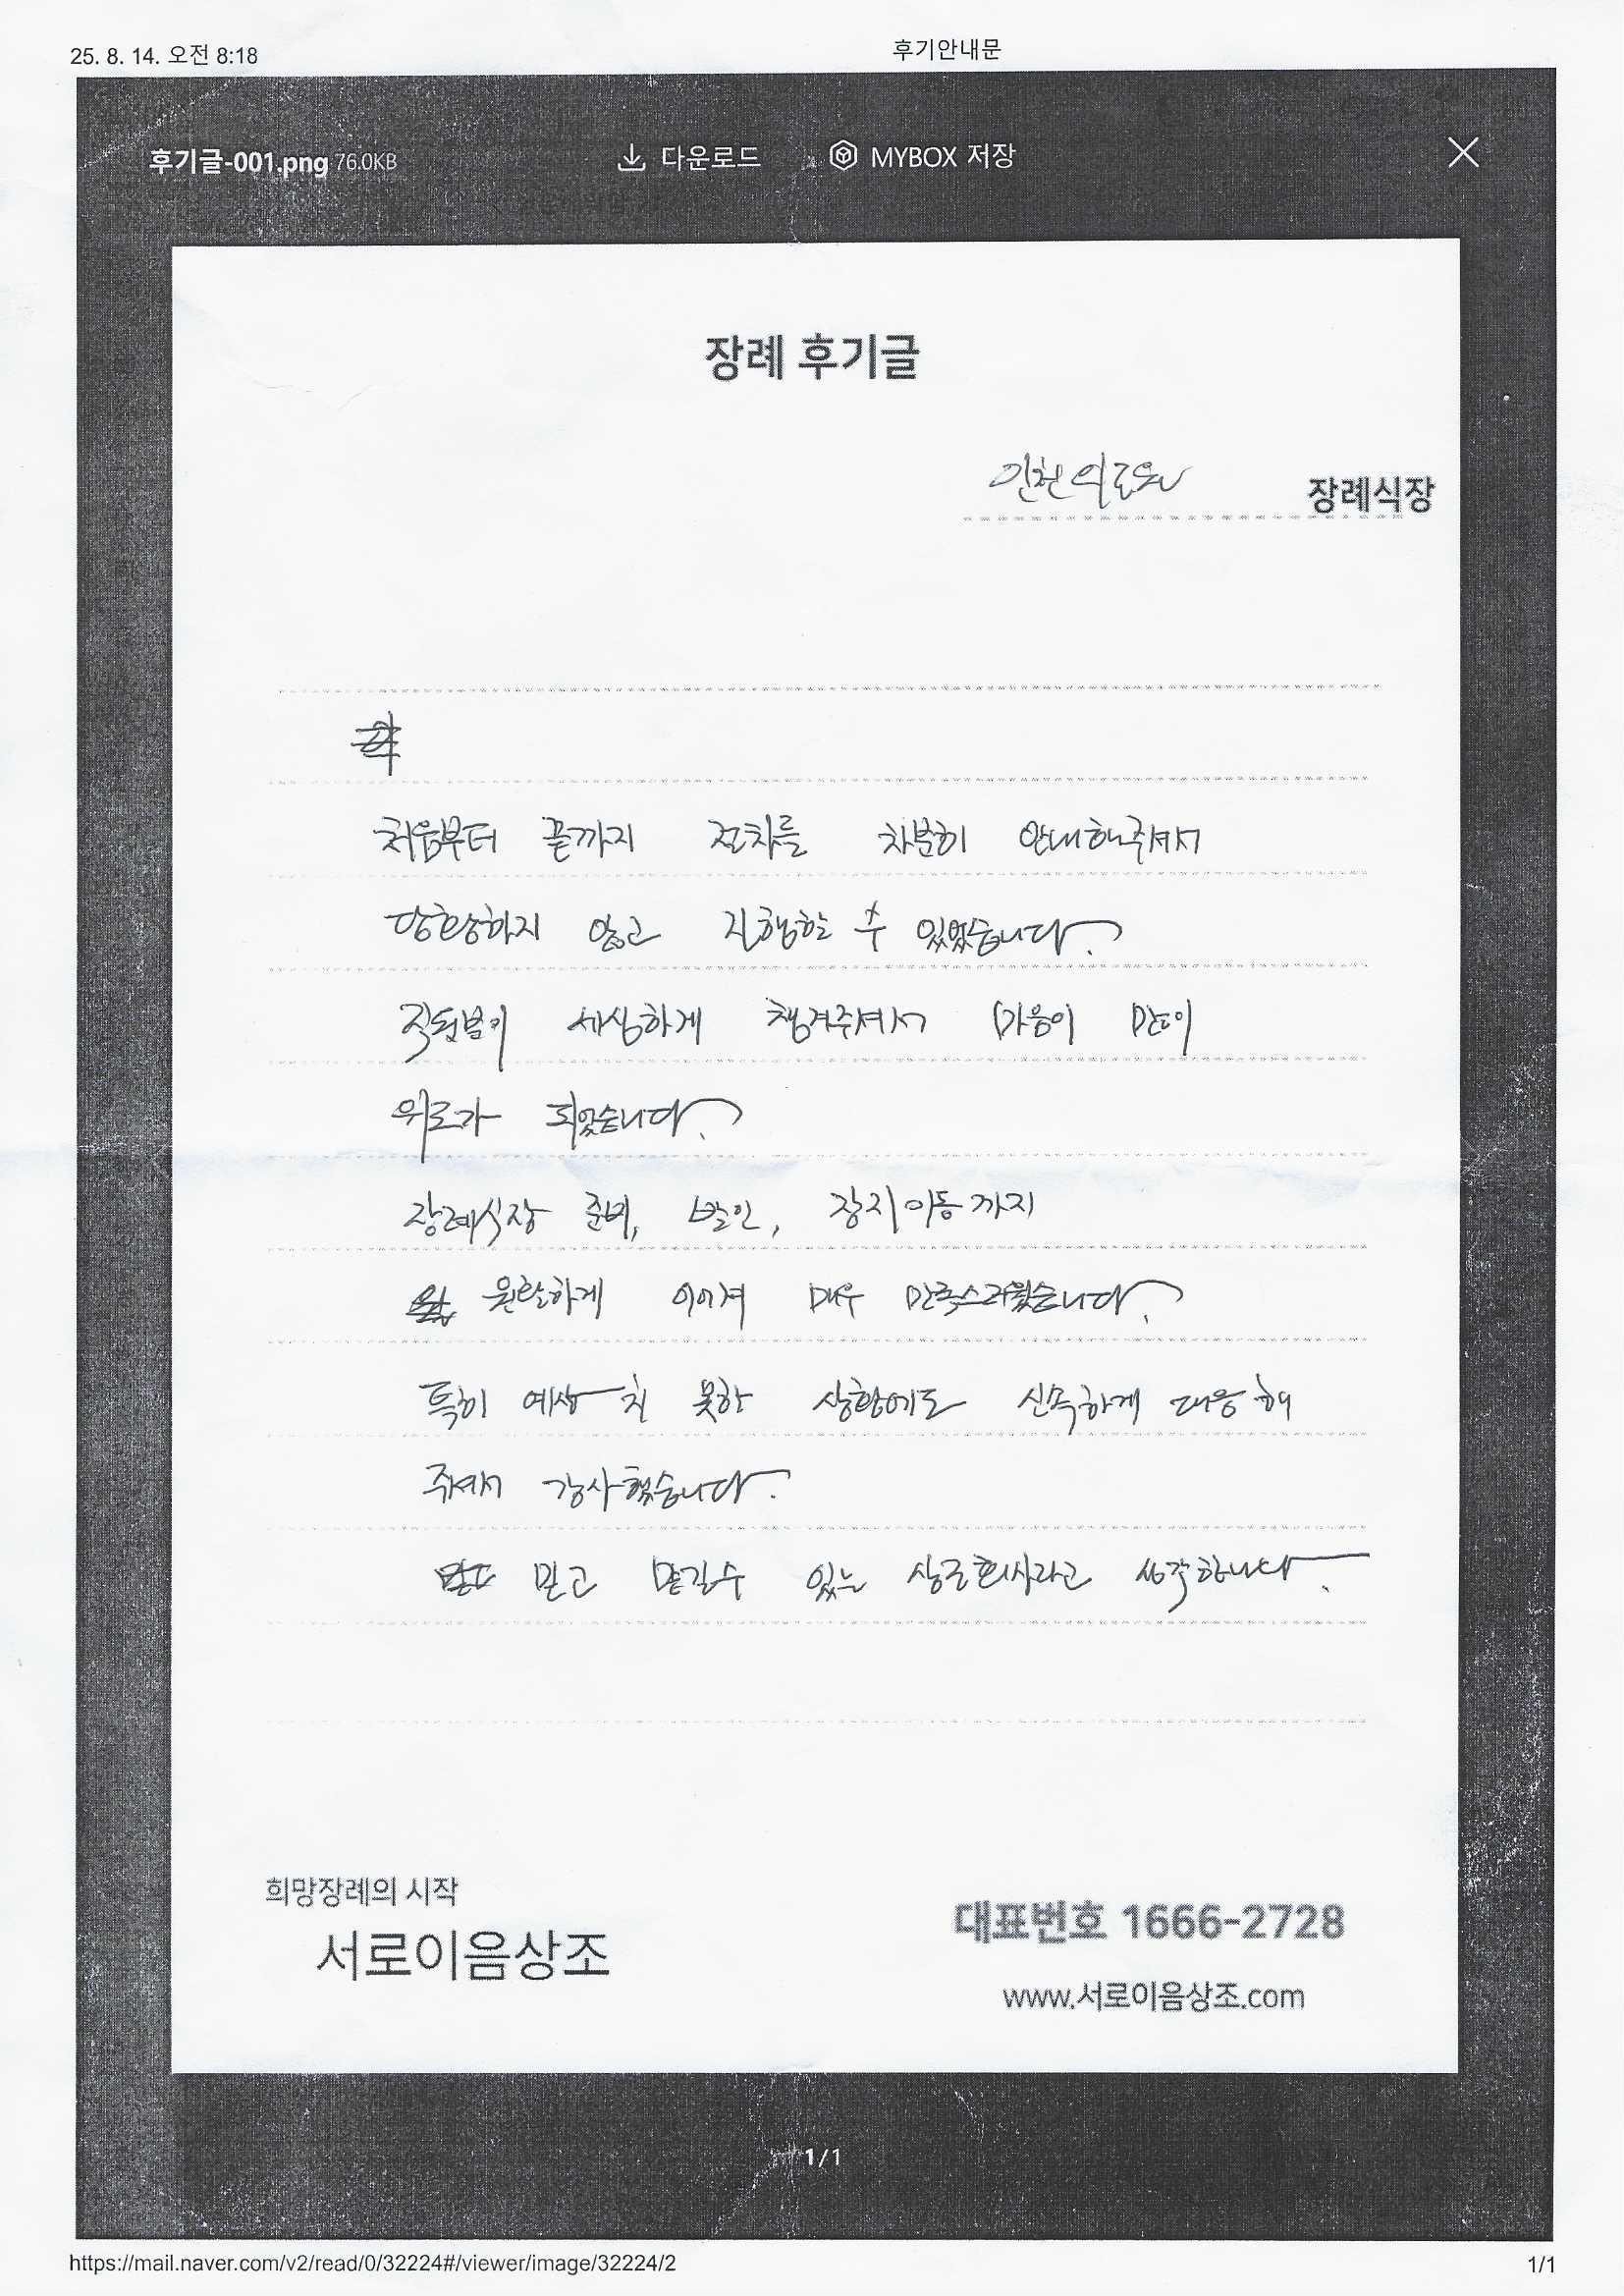 25. 8. 14. 오전 8:18
후기안내문
후기글-001.png 76.0KB
다운로드
MYBOX 저장
장례 후기글
인천의료원 장례식장
처음부터 끝까지 절차를 차분히 안내해주셔서
당황하지 않고 진행할 수 있었습니다.
직원분이 세심하게 챙겨주셔서 마음이 많이
위로가 되었습니다.
장례식장 준비, 발인, 장지이동까지
원활하게 이어져 매우 만족스러웠습니다.
특히 예상치 못한 상황에도 신속하게 대응해
주셔서 감사했습니다.
믿고 맡길수 있는 상조회사라고 생각합니다.
희망장례의 시작
서로이음상조
대표번호 1666-2728
www.서로이음상조.com
1/1
https://mail.naver.com/v2/read/0/32224#/viewer/image/32224/2
1/1